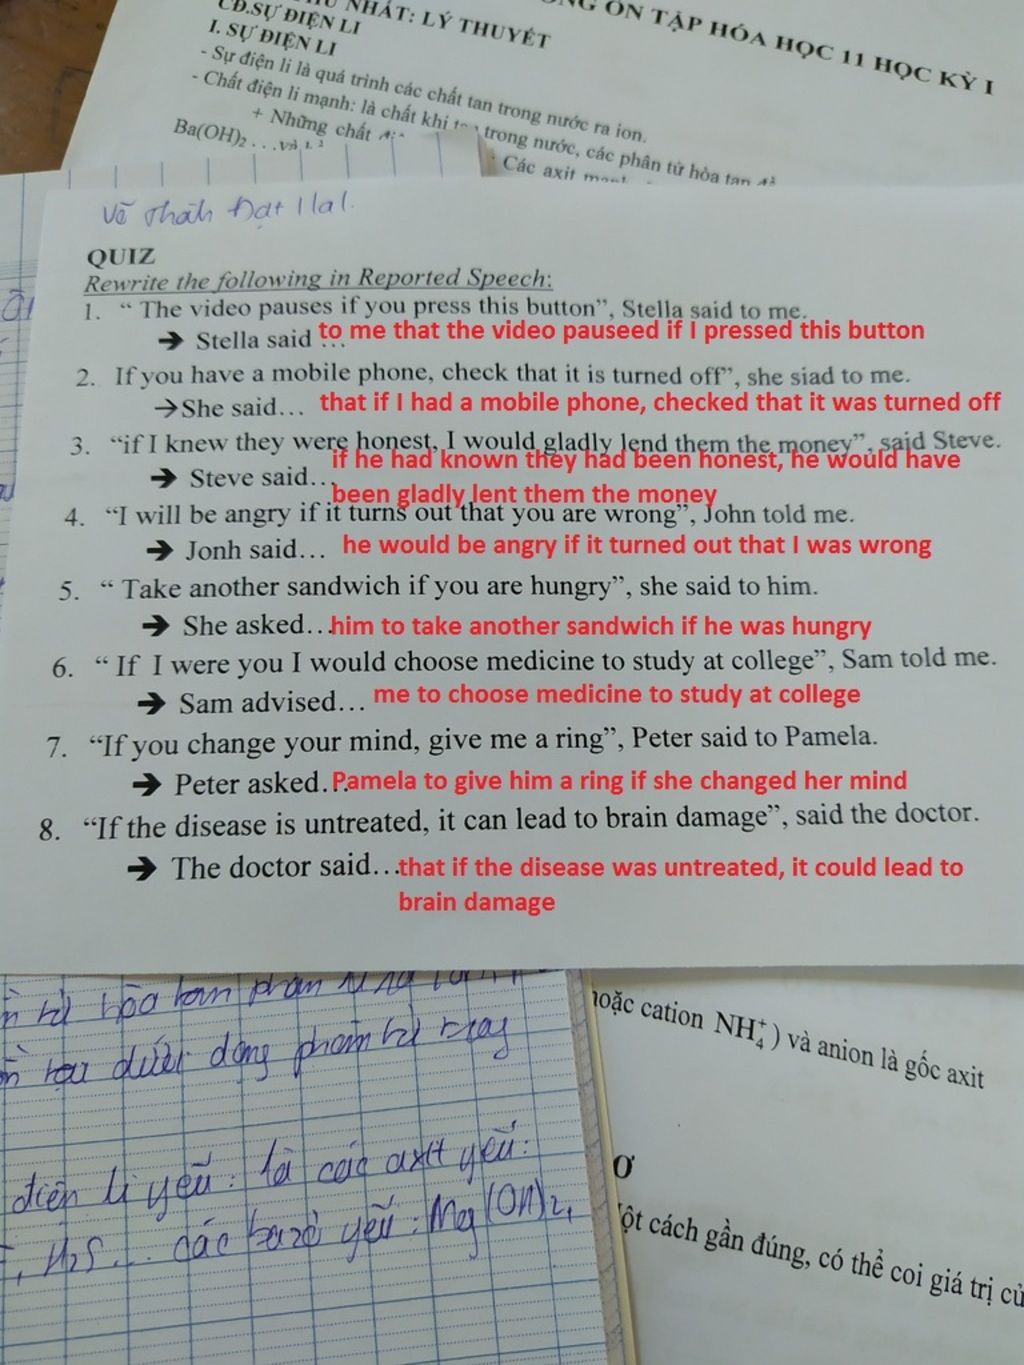 NG ÔN TẬP HÓA HỌC 11 HỌC KỲ I
NHẤT: LÝ THUYẾT
CĐ.SỰ ĐIỆN LI
I. SỰ ĐIỆN LI
- Sự điện li là quá trình các chất tan trong nước ra ion.
- Chất điện li mạnh: là chất khi trong nước, các phân tử hòa tan
+ Những chất
Ba(OH)₂ . . .và
Các axit
QUIZ
Rewrite the following in Reported Speech:
1. “ The video pauses if you press this button”, Stella said to me.
➔ Stella said … to me that the video pauseed if I pressed this button
2. If you have a mobile phone, check that it is turned off”, she siad to me.
→She said… that if I had a mobile phone, checked that it was turned off
3. “if I knew they were honest, I would gladly lend them the money”, said Steve.
➔ Steve said… if he had known they had been honest, he would have
been gladly lent them the money
4. “I will be angry if it turns out that you are wrong”, John told me.
➔ Jonh said… he would be angry if it turned out that I was wrong
5. “ Take another sandwich if you are hungry”, she said to him.
➔ She asked…him to take another sandwich if he was hungry
6. “ If I were you I would choose medicine to study at college”, Sam told me.
➔ Sam advised… me to choose medicine to study at college
7. “If you change your mind, give me a ring”, Peter said to Pamela.
➔ Peter asked… Pamela to give him a ring if she changed her mind
8. “If the disease is untreated, it can lead to brain damage”, said the doctor.
➔ The doctor said…that if the disease was untreated, it could lead to
brain damage
hòa tan phân
dưới dạng phân tử
điện li yếu: là các axit yếu:
H₂S... các bazơ yếu: Mg(OH)₂,
hoặc cation NH₄⁺) và anion là gốc axit
Ơ
ột cách gần đúng, có thể coi giá trị củ